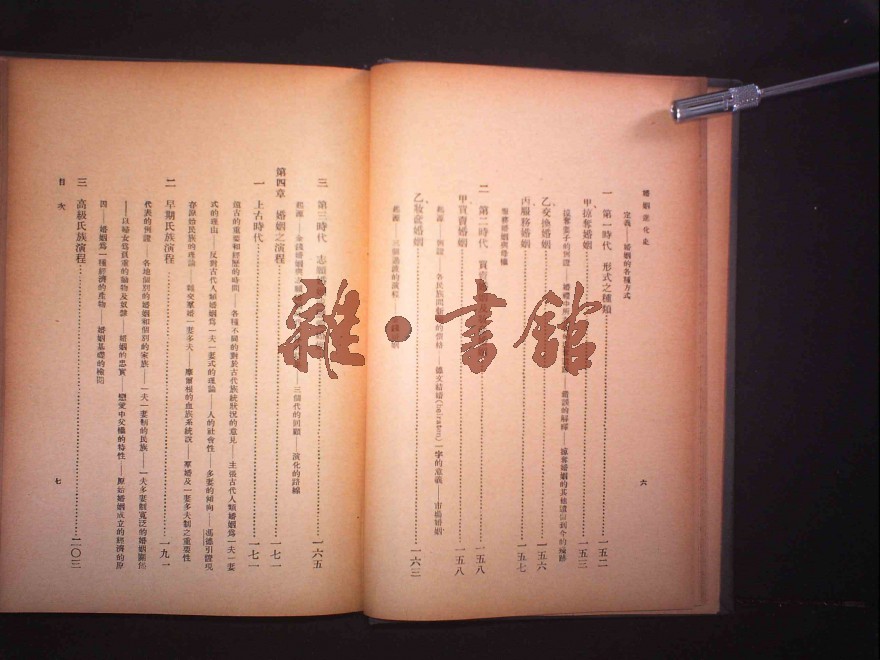 婚姻進化史
定義——婚姻的各種方式
一 第一時代 形式之種類……一五二
甲、掠奪婚姻……一五三
掠奪妻子的例證——婚禮中所——錯誤的解釋——掠奪婚姻的其他遺留到今的痕跡
乙、交換婚姻……一五六
丙、服務婚姻……一五七
聖禮婚姻與母權
二 第二時代 買賣……一五八
甲、買賣婚姻……一五八
起源——例證——各民族間新娘的價格——德文結婚(heiraten)一字的意義——市場婚姻
乙、嫁奩婚姻……一六三
起源——婚姻
六
三 第三時代 志願婚……一六五
起源——金錢婚姻與——三個時代的回顧——演化的路線
第四章 婚姻之演程……一七一
一 上古時代……一七一
遠古的重要和經歷的時間——各種不同的對於古代族統狀況的意見——主張古代人類婚姻爲一夫一妻
式的理由——反對古代人類婚姻爲一夫一妻式的理論——人的社會性——多妻的傾向——馮德引證現
存原始民族的理論——雜交羣婚一妻多夫——摩爾根的血族系統說——羣婚及一妻多夫制之重要性
二 早期氏族演程……一九一
代表的例證——各地個別的婚姻和個別的家族——一夫一妻制的民族——一夫多妻制寬泛的婚姻關係
——以婦女爲負重的動物及奴隸——婚姻的忠實——戀愛中父權的特性——原始婚姻成立的經濟的原
因——婚姻爲一種經濟的產物——婚姻基礎的檢閱
三 高級氏族演程……二〇三
目次
七
雜·書館